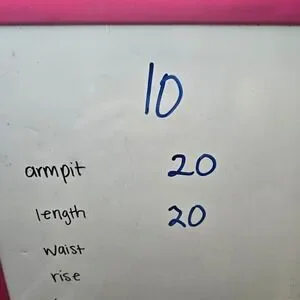 10
armpit 20
length 20
waist
rise